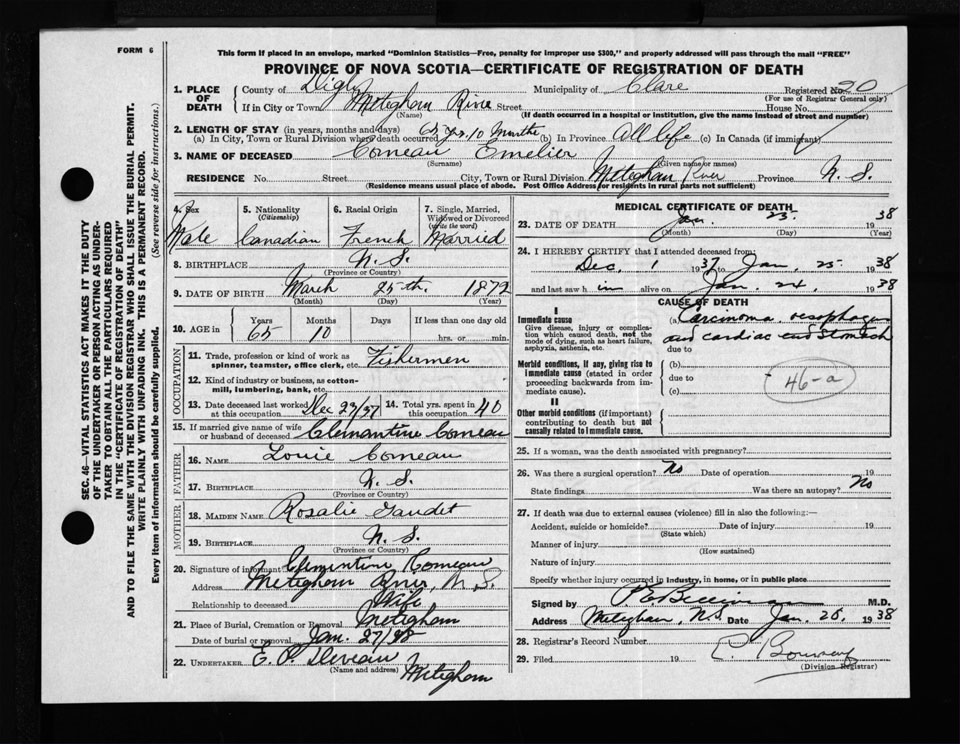 FORM 6
This form if placed in an envelope, marked "Dominion Statistics—Free, penalty for improper use $300," and properly addressed will pass through the mail "FREE"
PROVINCE OF NOVA SCOTIA—CERTIFICATE OF REGISTRATION OF DEATH
1. PLACE OF DEATH
County of Digby Municipality of Clare Registered No. 20
(For use of Registrar General only)
If in City or Town Meteghan River Street House No.
(Name) (If death occurred in a hospital or institution, give the name instead of street and number)
2. LENGTH OF STAY (in years, months and days)
(a) In City, Town or Rural Division where death occurred 65 yrs. 10 Months (b) In Province All life (c) In Canada (if immigrant)
3. NAME OF DECEASED Comeau Emelier
(Surname) (Given name or names)
RESIDENCE No. Street City, Town or Rural Division Meteghan River Province N. S.
(Residence means usual place of abode. Post Office Address for residents in rural parts not sufficient)
4. Sex 5. Nationality (Citizenship) 6. Racial Origin 7. Single, Married, Widowed or Divorced (write the word)
Male Canadian French Married
8. BIRTHPLACE N. S.
(Province or Country)
9. DATE OF BIRTH March 25th. 1872
(Month) (Day) (Year)
10. AGE in Years Months Days If less than one day old
65 10 hrs. or min.
OCCUPATION
11. Trade, profession or kind of work as spinner, teamster, office clerk, etc. Fishermen
12. Kind of industry or business, as cotton-mill, lumbering, bank, etc.
13. Date deceased last worked at this occupation Dec 23/37 14. Total yrs. spent in this occupation 40
15. If married give name of wife or husband of deceased Clemantine Comeau
FATHER
16. NAME Louie Comeau
17. BIRTHPLACE N. S.
(Province or Country)
MOTHER
18. MAIDEN NAME Rosalie Gaudet
19. BIRTHPLACE N. S.
(Province or Country)
20. Signature of informant Clementine Comeau
Address Meteghan River, N. S.
Relationship to deceased Wife
21. Place of Burial, Cremation or Removal Meteghan
Date of burial or removal Jan. 27/38
22. UNDERTAKER E. P. Deveau Meteghan
(Name and address)
MEDICAL CERTIFICATE OF DEATH
23. DATE OF DEATH Jan. 25. 1938
(Month) (Day) (Year)
24. I HEREBY CERTIFY that I attended deceased from:
Dec. 1 1937 to Jan. 25 1938
and last saw him alive on Jan. 24. 1938
CAUSE OF DEATH
I
Immediate cause
Give disease, injury or complication which caused death, not the mode of dying, such as heart failure, asphyxia, asthenia, etc.
(a) Carcinoma oesophagus and cardiac end stomach
due to
Morbid conditions, if any, giving rise to immediate cause (stated in order proceeding backwards from immediate cause).
(b)
due to
(c)
46-a
II
Other morbid conditions (if important) contributing to death but not causally related to immediate cause.
25. If a woman, was the death associated with pregnancy?
26. Was there a surgical operation? No Date of operation 19
State findings Was there an autopsy? No
27. If death was due to external causes (violence) fill in also the following:—
Accident, suicide or homicide? Date of injury 19
(State which)
Manner of injury
(How sustained)
Nature of injury
Specify whether injury occurred in industry, in home, or in public place
Signed by M.D.
Address Meteghan, N.S. Date Jan. 25, 1938
28. Registrar's Record Number
29. Filed 19
(Division Registrar)
SEC. 46—VITAL STATISTICS ACT MAKES IT THE DUTY
OF THE UNDERTAKER OR PERSON ACTING AS UNDER-
TAKER TO OBTAIN ALL THE PARTICULARS REQUIRED
IN THE "CERTIFICATE OF REGISTRATION OF DEATH"
AND TO FILE THE SAME WITH THE DIVISION REGISTRAR WHO SHALL ISSUE THE BURIAL PERMIT.
WRITE PLAINLY WITH UNFADING INK. THIS IS A PERMANENT RECORD.
Every item of information should be carefully supplied. (See reverse side for instructions.)